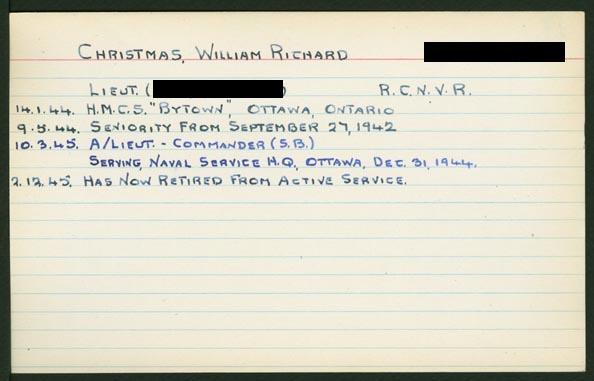 CHRISTMAS, WILLIAM RICHARD
LIEUT. ( ) R.C.N.V.R.
14.1.44. H.M.C.S. "BYTOWN", OTTAWA, ONTARIO
9.5.44. SENIORITY FROM SEPTEMBER 27, 1942
10.3.45. A/LIEUT. - COMMANDER (S.B.)
SERVING, NAVAL SERVICE H.Q., OTTAWA, DEC. 31, 1944.
2.12.45. HAS NOW RETIRED FROM ACTIVE SERVICE.